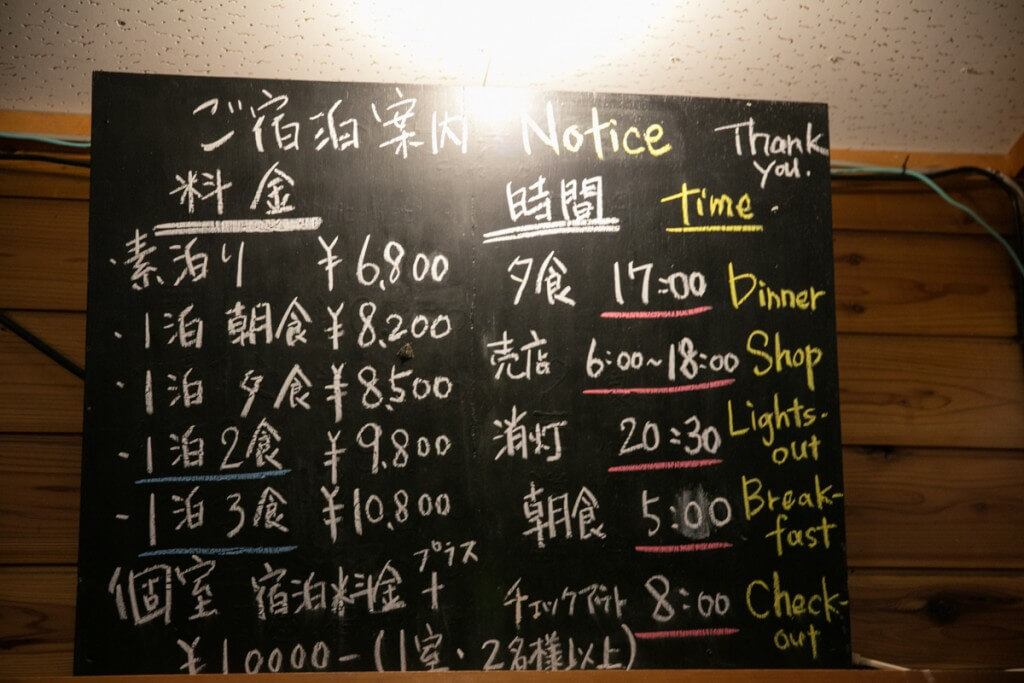 ご宿泊案内 Notice Thank you.
料金
・素泊り ¥6,800
・1泊 朝食 ¥8,200
・1泊 夕食 ¥8,500
・1泊2食 ¥9,800
・1泊3食 ¥10,800
個室 宿泊料金+プラス
¥10000-(1室・2名様以上)
時間 time.
夕食 17:00 Dinner
売店 6:00~18:00 Shop
消灯 20:30 Lights-out
朝食 5:00 Break-fast
チェックアウト 8:00 Check-out